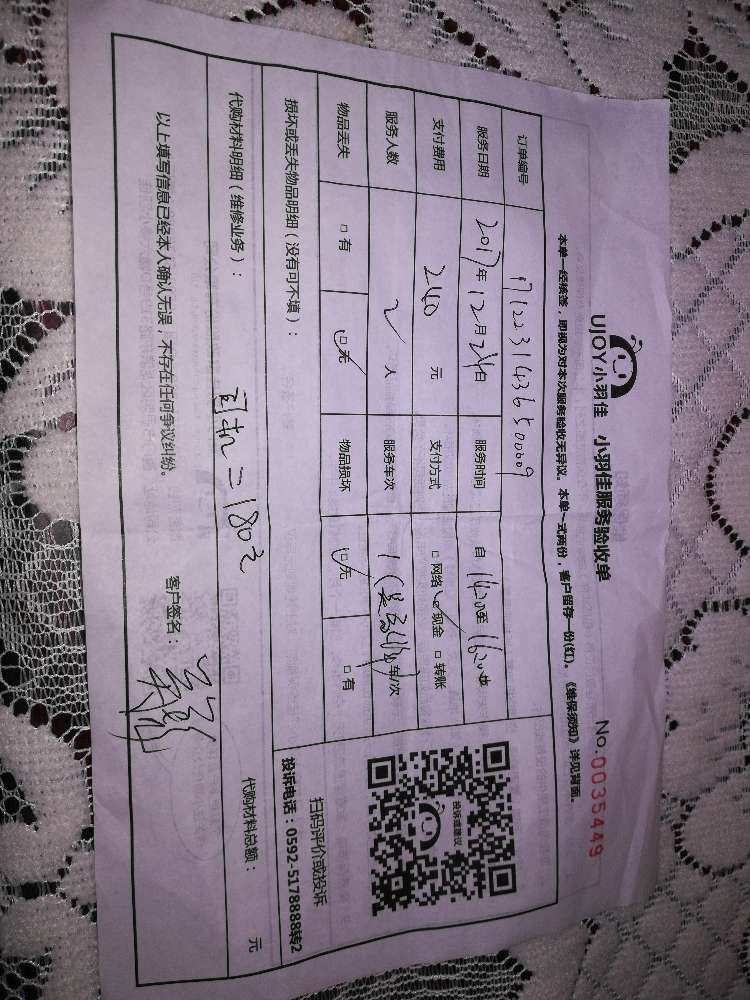 UJOY小羽佳 小羽佳服务验收单 No.0035449
本单一经核签，即视为对本次服务验收无异议。本单一式两份，客户留存一份(红)。《维保须知》详见背面。
订单编号 17122314365000609
服务日期 2017年12月24日 服务时间 自14:20至16:20
支付费用 240 元 支付方式 □网络 □现金 □转账
服务人数 2 人 服务车次 1 车/次
物品丢失 □有 □无 物品损坏 □无 □有
损坏或丢失物品明细（没有可不填）：
代购材料明细（维修业务）： 司机=180元 代购材料总额： 元
以上填写信息已经本人确认无误，不存在任何争议纠纷。 客户签名：
投诉或建议
扫码评价或投诉
投诉电话：0592-5178888转2